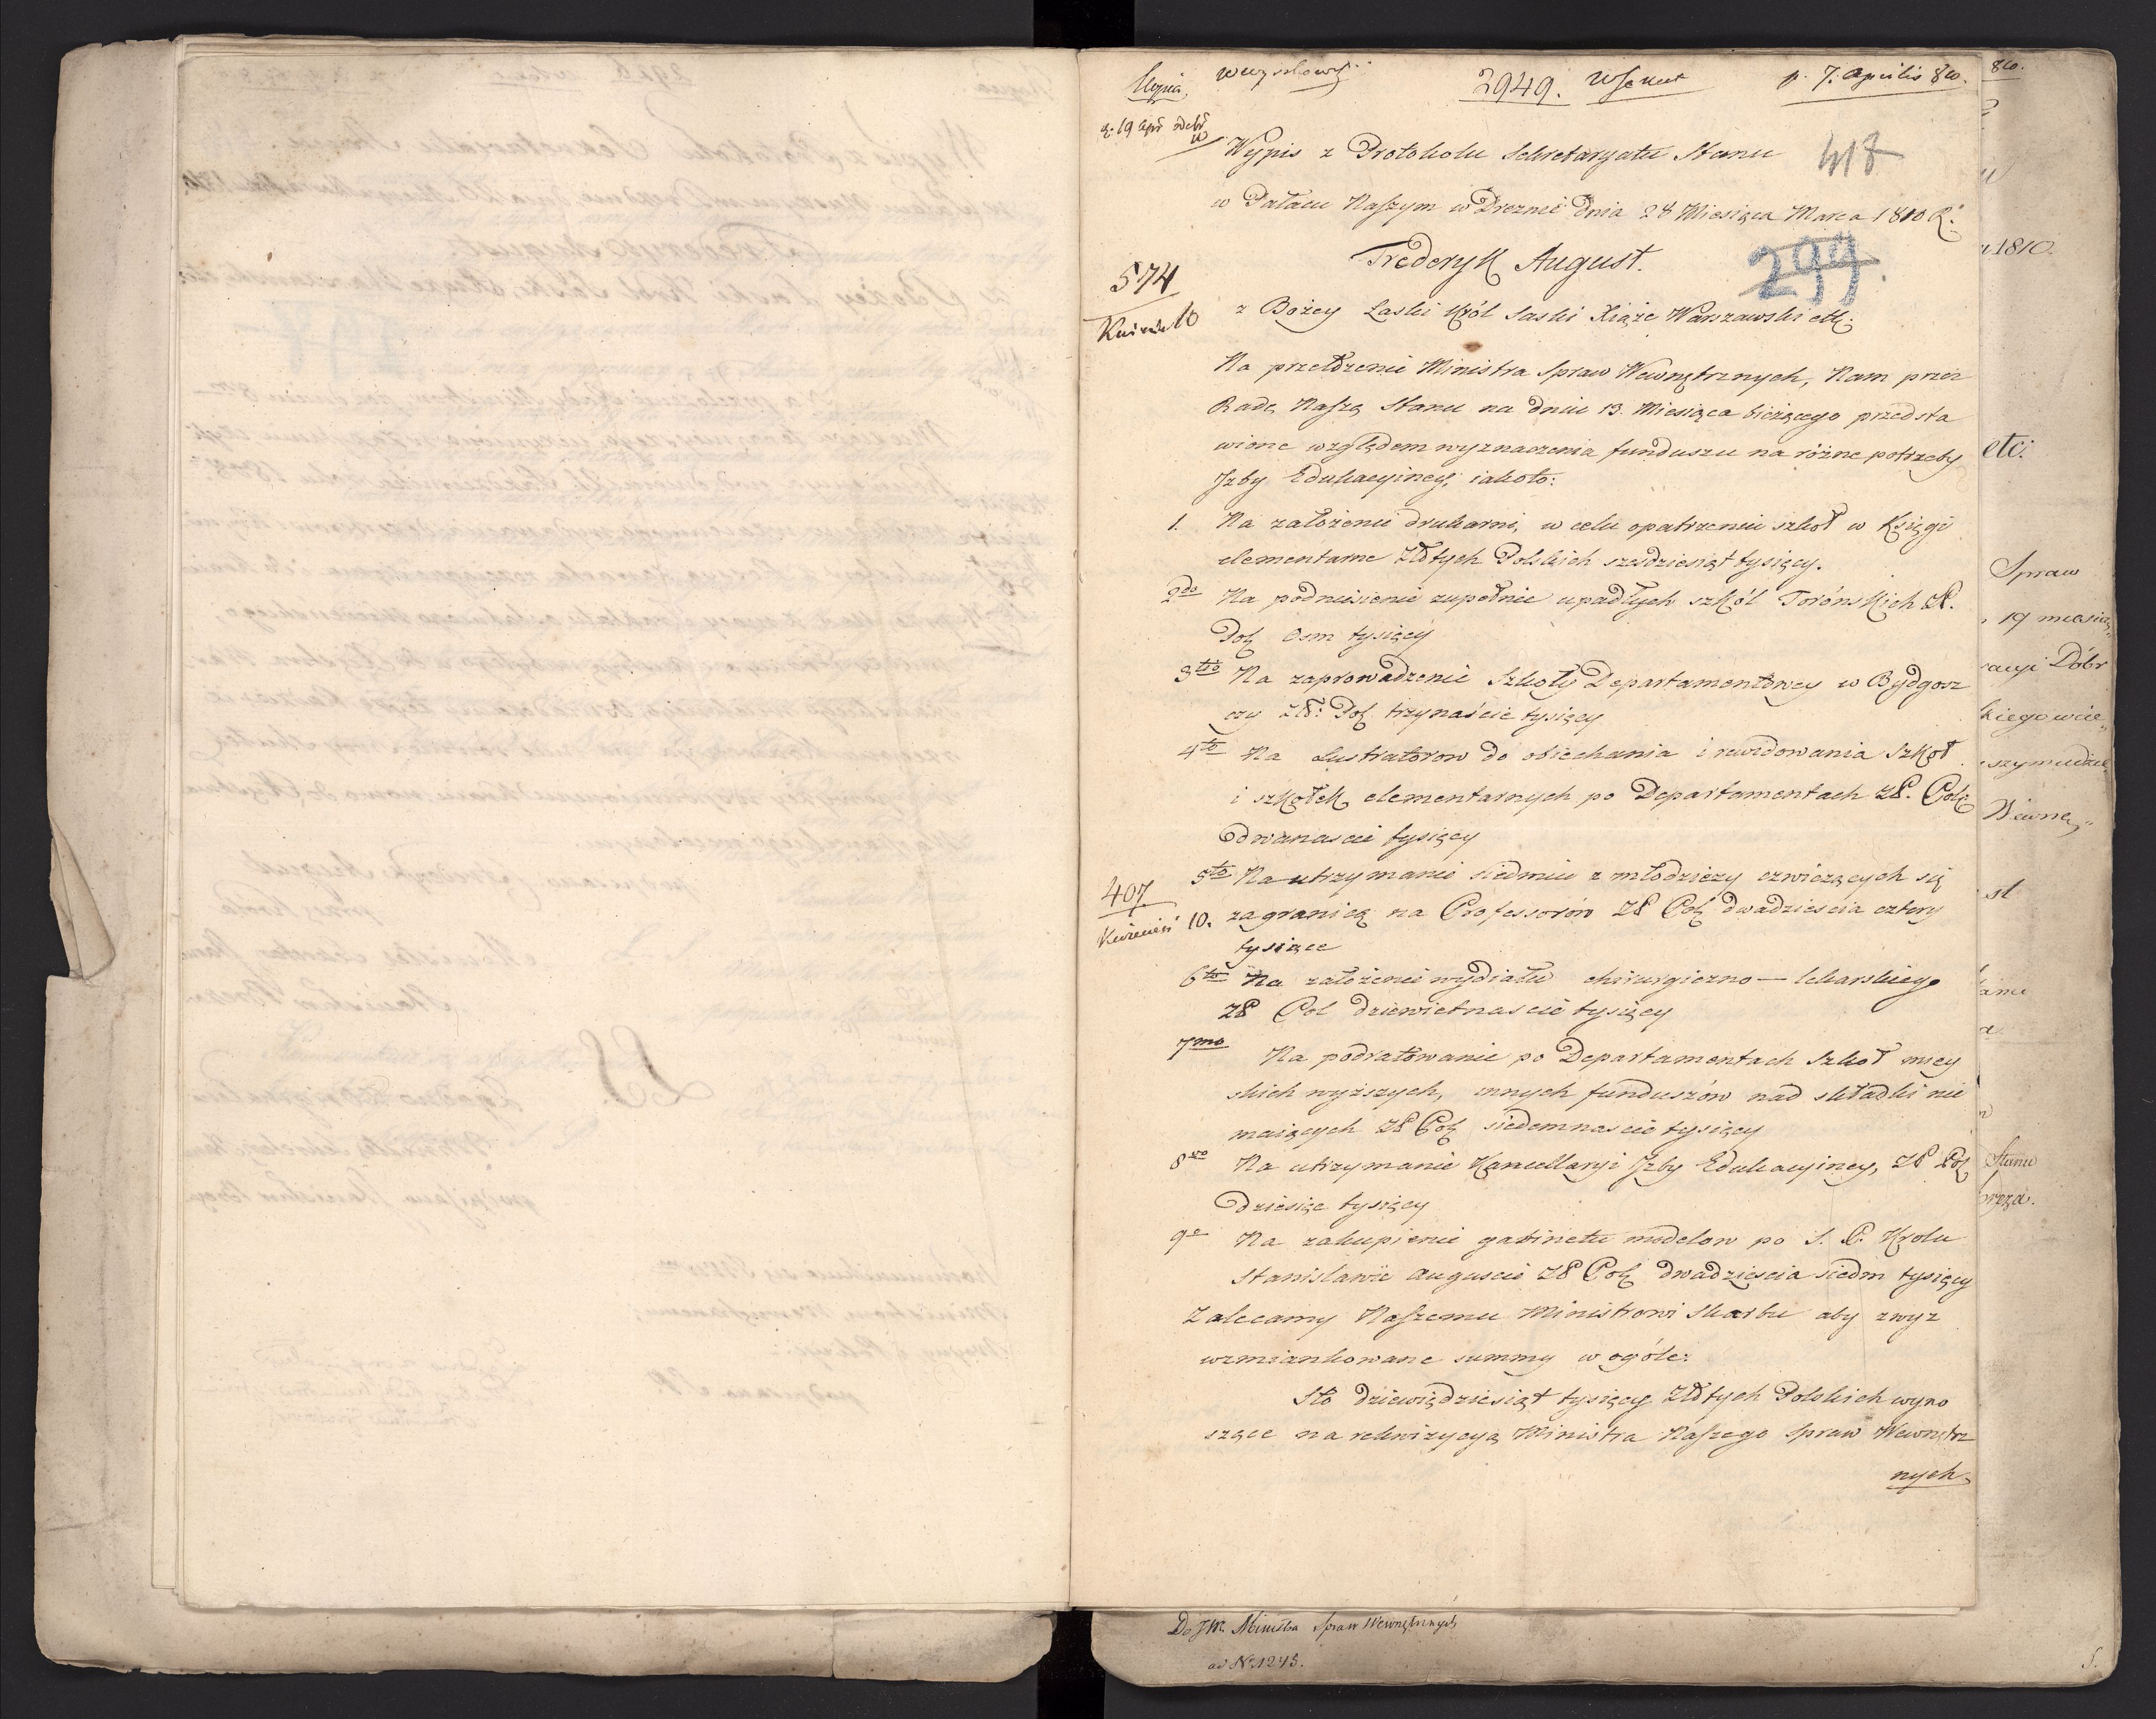 Kopia.
2949.
p. 7. Aprilis 810.
Wypis z Protokolu Sekretaryatu Stanu
418
w Pałacu Naszym w Dreznie Dnia 28 Miesiąca Marca 1810 R.
Frederyk August.
299.
574
Kwiet. 10
z Bożey Laski Król Saski Xiąże Warszawski etc:
Na przełożenie Ministra Spraw Wewnętrznych, Nam przez
Radę Naszą Stanu na dniu 13. Miesiąca bieżącego przedsta
wione względem wyznaczenia funduszu na różne potrzeby
Izby Edukacyiney, iakoto:
1. Na założenie drukarni, w celu opatrzenia szkoł w Księgi
elementarne Złotych Polskich sześdziesiąt tysięcy.
2do Na podniesienie zupełnie upadłych szkól Torónskich Zł.
Pol. osm tysięcy
3tio Na zaprowadzenie Szkoły Departamentowey w Bydgosz
czy Zł: Pol. trzynaście tysięcy
4to Na Lustratorow do obiechania i rewidowania Szkoł
i szkołek elementarnych po Departamentach Zł. Pol:
dwanascie tysięcy
5to Na utrzymanie siedmiu z młodzieży czwiczących się
407
Kwiecień 10.
zagranicą na Professorów Zł Pol. dwadziescia cztery
tysiące
6to Na założenie wydiału chirurgiczno — lekarskiego
Zł Pol dziewietnascie tysięcy
7mo Na podratowanie po Departamentach Szkoł miey
skich wyższych, innych funduszów nad składki nie
maiących Zł Pol. siedemnascie tysięcy
8vo Na utrzymanie Kancellaryi Izby Edukacyiney, Zł Pol.
dziesięc tysięcy
9o Na zakupienie gabinetu modelow po S. P. Krolu
Stanislawie Auguscie Zł Pol. dwadziescia siedm tysięcy
Zalecamy Naszemu Ministrowi Skarbu aby zwyz
wzmiankowane summy w ogóle:
Sto dziewiędziesiąt tysięcy Złotych Polskich wyno
szące na rekwizycyą Ministra Naszego Spraw Wewnętrz
nych.
810.
1810.
etc:
Spraw
19 miesią„
acyi Dóbr
kiego wie„
szym udzie„
Wewnę„
st
Stanu
breza.
Do JW. Ministra Spraw Wewnętrznych
ad No 1245.
5.